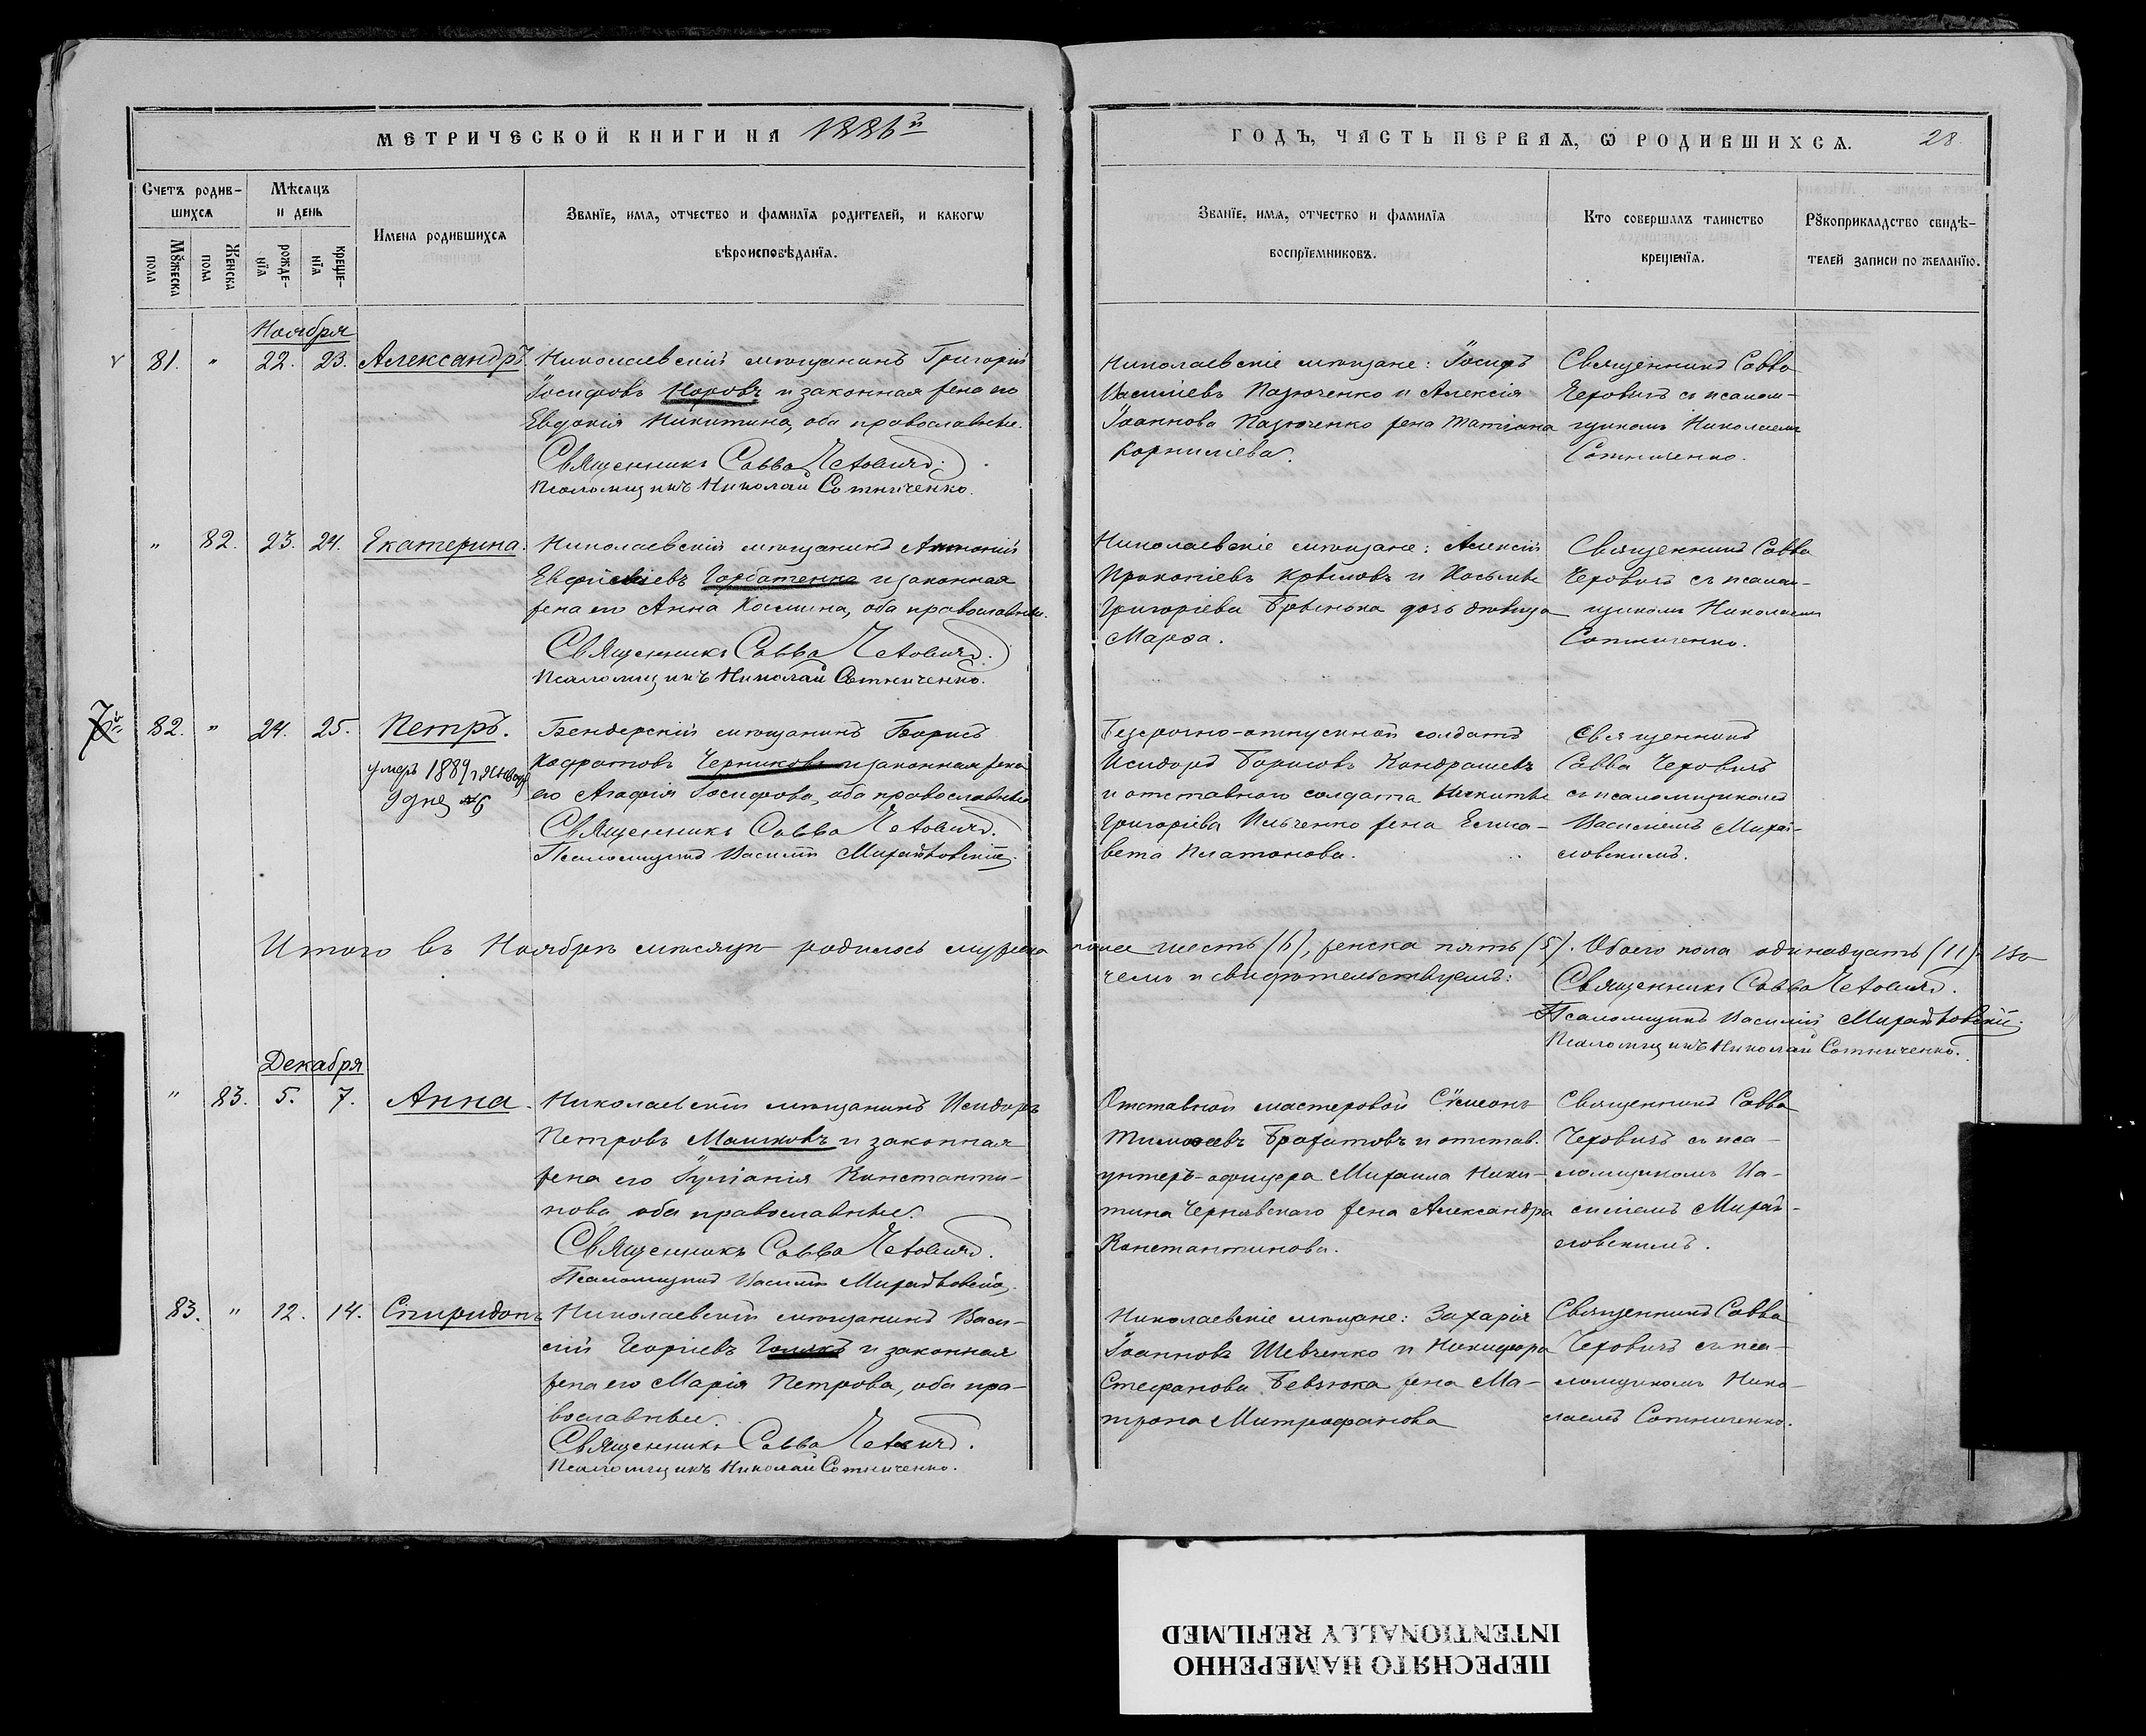 МЕТРИЧЕСКОЙ КНИГИ НА 1886й
ГОДЪ, ЧАСТЬ ПЕРВАЯ, Ѡ РОДИВШИХСѦ.
28.
Счетъ родив-
шихсѧ
Мѣсѧцъ
и день
Мꙋжеска
пола
Женска
пола
рожде-
нїѧ
креще-
нїѧ
Имена родившихсѧ
Званїе, имѧ, отчество и фамилїѧ родителей, и какогѡ
вѣроисповѣданїѧ.
Званїе, имѧ, отчество и фамилїѧ
воспрїемниковъ.
Кто совершалъ таинство
крещенїѧ.
Рꙋкоприкладство свидѣ-
телей записи по желанїю.
Ноября
81. " 22. 23. Александръ.
Николаевскій мѣщанинъ Григорій
Іосифовъ Норовъ и законная жена его
Евдокія Никитина, оба православные.
Священникъ Савва Чехович.
Псаломщикъ Николай Сотниченко.
Николаевскіе мѣщане: Іосифъ
Василіевъ Пазюченко и Алексія
Іоаннова Пазюченко жена Татіана
Корниліева.
Священникъ Савва
Чеховичъ съ псалом-
щикомъ Николаемъ
Сотниченко.
" 82. 23. 24. Екатерина.
Николаевскій мѣщанинъ Антоній
Горбатенко и законная
жена его Анна Косьмина, оба православные.
Священникъ Савва Чеховичъ.
Псаломщикъ Николай Сотниченко.
Николаевскіе мѣщане: Алексій
Прокопіевъ Крыловъ и Косьмы
Григоріева дочь дѣвица
Марѳа.
Священникъ Савва
Чеховичъ съ псалом-
щикомъ Николаемъ
Сотниченко.
82. " 24. 25. Петръ.
умеръ 1889 г Января
9 дня №6
Бендерскій мѣщанинъ Борисъ
Черниковъ и законная жена
его Агафія Іосифова, оба православные
Священникъ Савва Чеховичъ.
Псаломщикъ Василій
Безсрочно-отпускной солдатъ
Исидоръ Борисовъ Кондрашевъ
и отставного солдата Никиты
Григоріева Ильченко жена Елиса-
вета Платонова.
Священникъ
Савва Чеховичъ
съ псаломщикомъ
Василіемъ
Итого въ Ноябрѣ мѣсяцѣ родилось мужеска пола шесть (6), женска пять (5). Обоего пола одинадцать (11). Въ
чемъ и свидѣтельствуемъ:
Священникъ Савва Чеховичъ.
Псаломщикъ Василій
Псаломщикъ Николай Сотниченко.
Декабря
" 83. 5. 7. Анна.
Николаевскій мѣщанинъ Исидоръ
Петровъ Машковъ и законная
жена его Іуліанія Константи-
нова оба православные.
Священникъ Савва Чеховичъ.
Псаломщикъ Василій
Отставной мастеровой Сѵмеонъ
Тимоѳеевъ и отстав.
унтеръ-офицера Михаила Ники-
тина Чернявскаго жена Александра
Константинова.
Священникъ Савва
Чеховичъ съ пса-
ломщикомъ Ва-
силіемъ
83. " 12. 14. Спиридонъ
Николаевскій мѣщанинъ Васи-
лій Георгіевъ и законная
жена его Марія Петрова, оба пра-
вославные.
Священникъ Савва Чеховичъ.
Псаломщикъ Николай Сотниченко.
Николаевскіе мѣщане: Захарія
Іоанновъ Шевченко и Никифора
Стефанова Бевзюка жена Ма-
трона Митрофанова
Священникъ Савва
Чеховичъ съ пса-
ломщикомъ Нико-
лаемъ Сотниченко.
ПЕРЕСНЯТО НАМЕРЕННО
INTENTIONALLY REFILMED